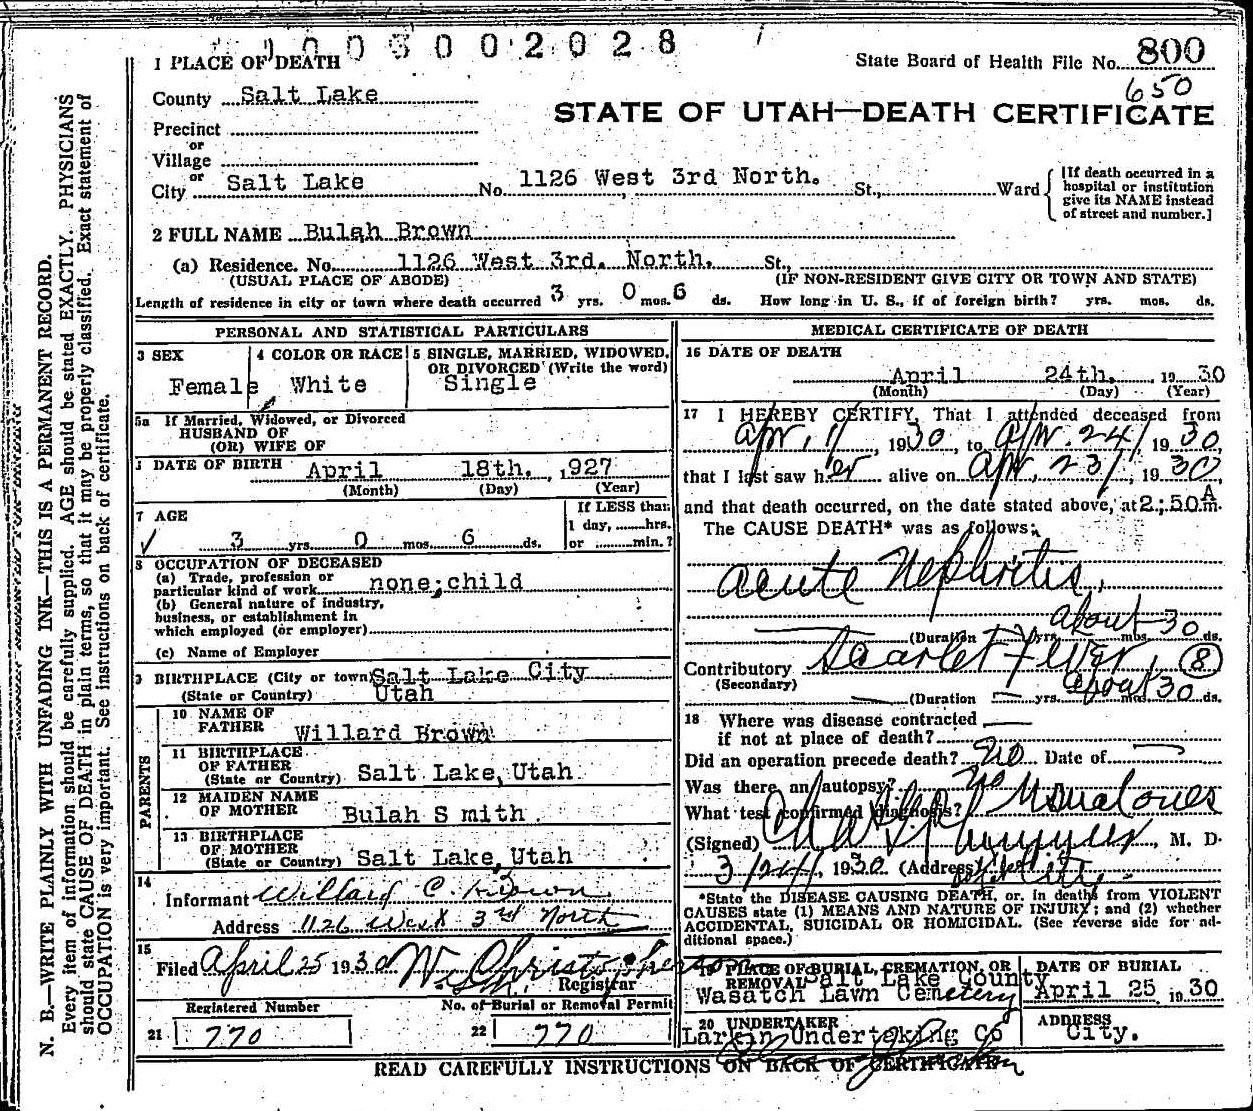 003002028
1 PLACE OF DEATH
State Board of Health File No. 800
650
County Salt Lake
STATE OF UTAH—DEATH CERTIFICATE
Precinct
or
Village
or
City Salt Lake No. 1126 West 3rd North. St., Ward
[If death occurred in a hospital or institution give its NAME instead of street and number.]
2 FULL NAME Bulah Brown
(a) Residence. No. 1126 West 3rd. North. St.,
(USUAL PLACE OF ABODE) (IF NON-RESIDENT GIVE CITY OR TOWN AND STATE)
Length of residence in city or town where death occurred 3 yrs. 0 mos. 6 ds. How long in U. S., if of foreign birth? yrs. mos. ds.
PERSONAL AND STATISTICAL PARTICULARS
3 SEX
Female
4 COLOR OR RACE
White
5 SINGLE, MARRIED, WIDOWED,
OR DIVORCED (Write the word)
Single
5a If Married, Widowed, or Divorced
HUSBAND OF
(OR) WIFE OF
DATE OF BIRTH April 18th. ,927
(Month) (Day) (Year)
7 AGE
3 yrs. 0 mos. 6 ds.
If LESS than
1 day, hrs.
or min.?
8 OCCUPATION OF DECEASED
(a) Trade, profession or
particular kind of work none;child
(b) General nature of industry,
business, or establishment in
which employed (or employer)
(c) Name of Employer
9 BIRTHPLACE (City or town) Salt Lake City
(State or Country) Utah
PARENTS
10 NAME OF
FATHER Willard Brown
11 BIRTHPLACE
OF FATHER
(State or Country) Salt Lake, Utah
12 MAIDEN NAME
OF MOTHER Bulah S mith
13 BIRTHPLACE
OF MOTHER
(State or Country) Salt Lake, Utah
14
Informant Willard C. Brown
Address 1126 West 3rd North
15
Filed April 25 1930 W. Christopherson
Registrar
Registered Number
21 770
No. of Burial or Removal Permit
22 770
MEDICAL CERTIFICATE OF DEATH
16 DATE OF DEATH
April 24th. , 1930
(Month) (Day) (Year)
17 I HEREBY CERTIFY, That I attended deceased from
Apr, 1/, 1930, to Apr. 24/, 1930,
that I last saw her alive on Apr, 23/, 1930
and that death occurred, on the date stated above, at 2:50 A m.
The CAUSE DEATH* was as follows:
Acute Nephritis,
about 30
(Duration yrs. mos. ds.
Contributory Scarlet Fever, (8)
(Secondary)
about 30
(Duration yrs. mos. ds.
18 Where was disease contracted
if not at place of death?
Did an operation precede death? No Date of
Was there an autopsy? No
What test confirmed diagnosis? Usual ones
(Signed) M. D.
3/24/, 1930 (Address) City
*State the DISEASE CAUSING DEATH, or, in deaths from VIOLENT
CAUSES state (1) MEANS AND NATURE OF INJURY; and (2) whether
ACCIDENTAL, SUICIDAL OR HOMICIDAL. (See reverse side for ad-
ditional space.)
19 PLACE OF BURIAL, CREMATION, OR
REMOVAL Salt Lake County
Wasatch Lawn Cemetery
DATE OF BURIAL
April 25, 1930
20 UNDERTAKER
Larkin Undertaking Co
ADDRESS
City.
READ CAREFULLY INSTRUCTIONS ON BACK OF CERTIFICATE
N. B.—WRITE PLAINLY WITH UNFADING INK—THIS IS A PERMANENT RECORD.
Every item of information should be carefully supplied. AGE should be stated EXACTLY. PHYSICIANS
should state CAUSE OF DEATH in plain terms, so that it may be properly classified. Exact statement of
OCCUPATION is very important. See instructions on back of certificate.